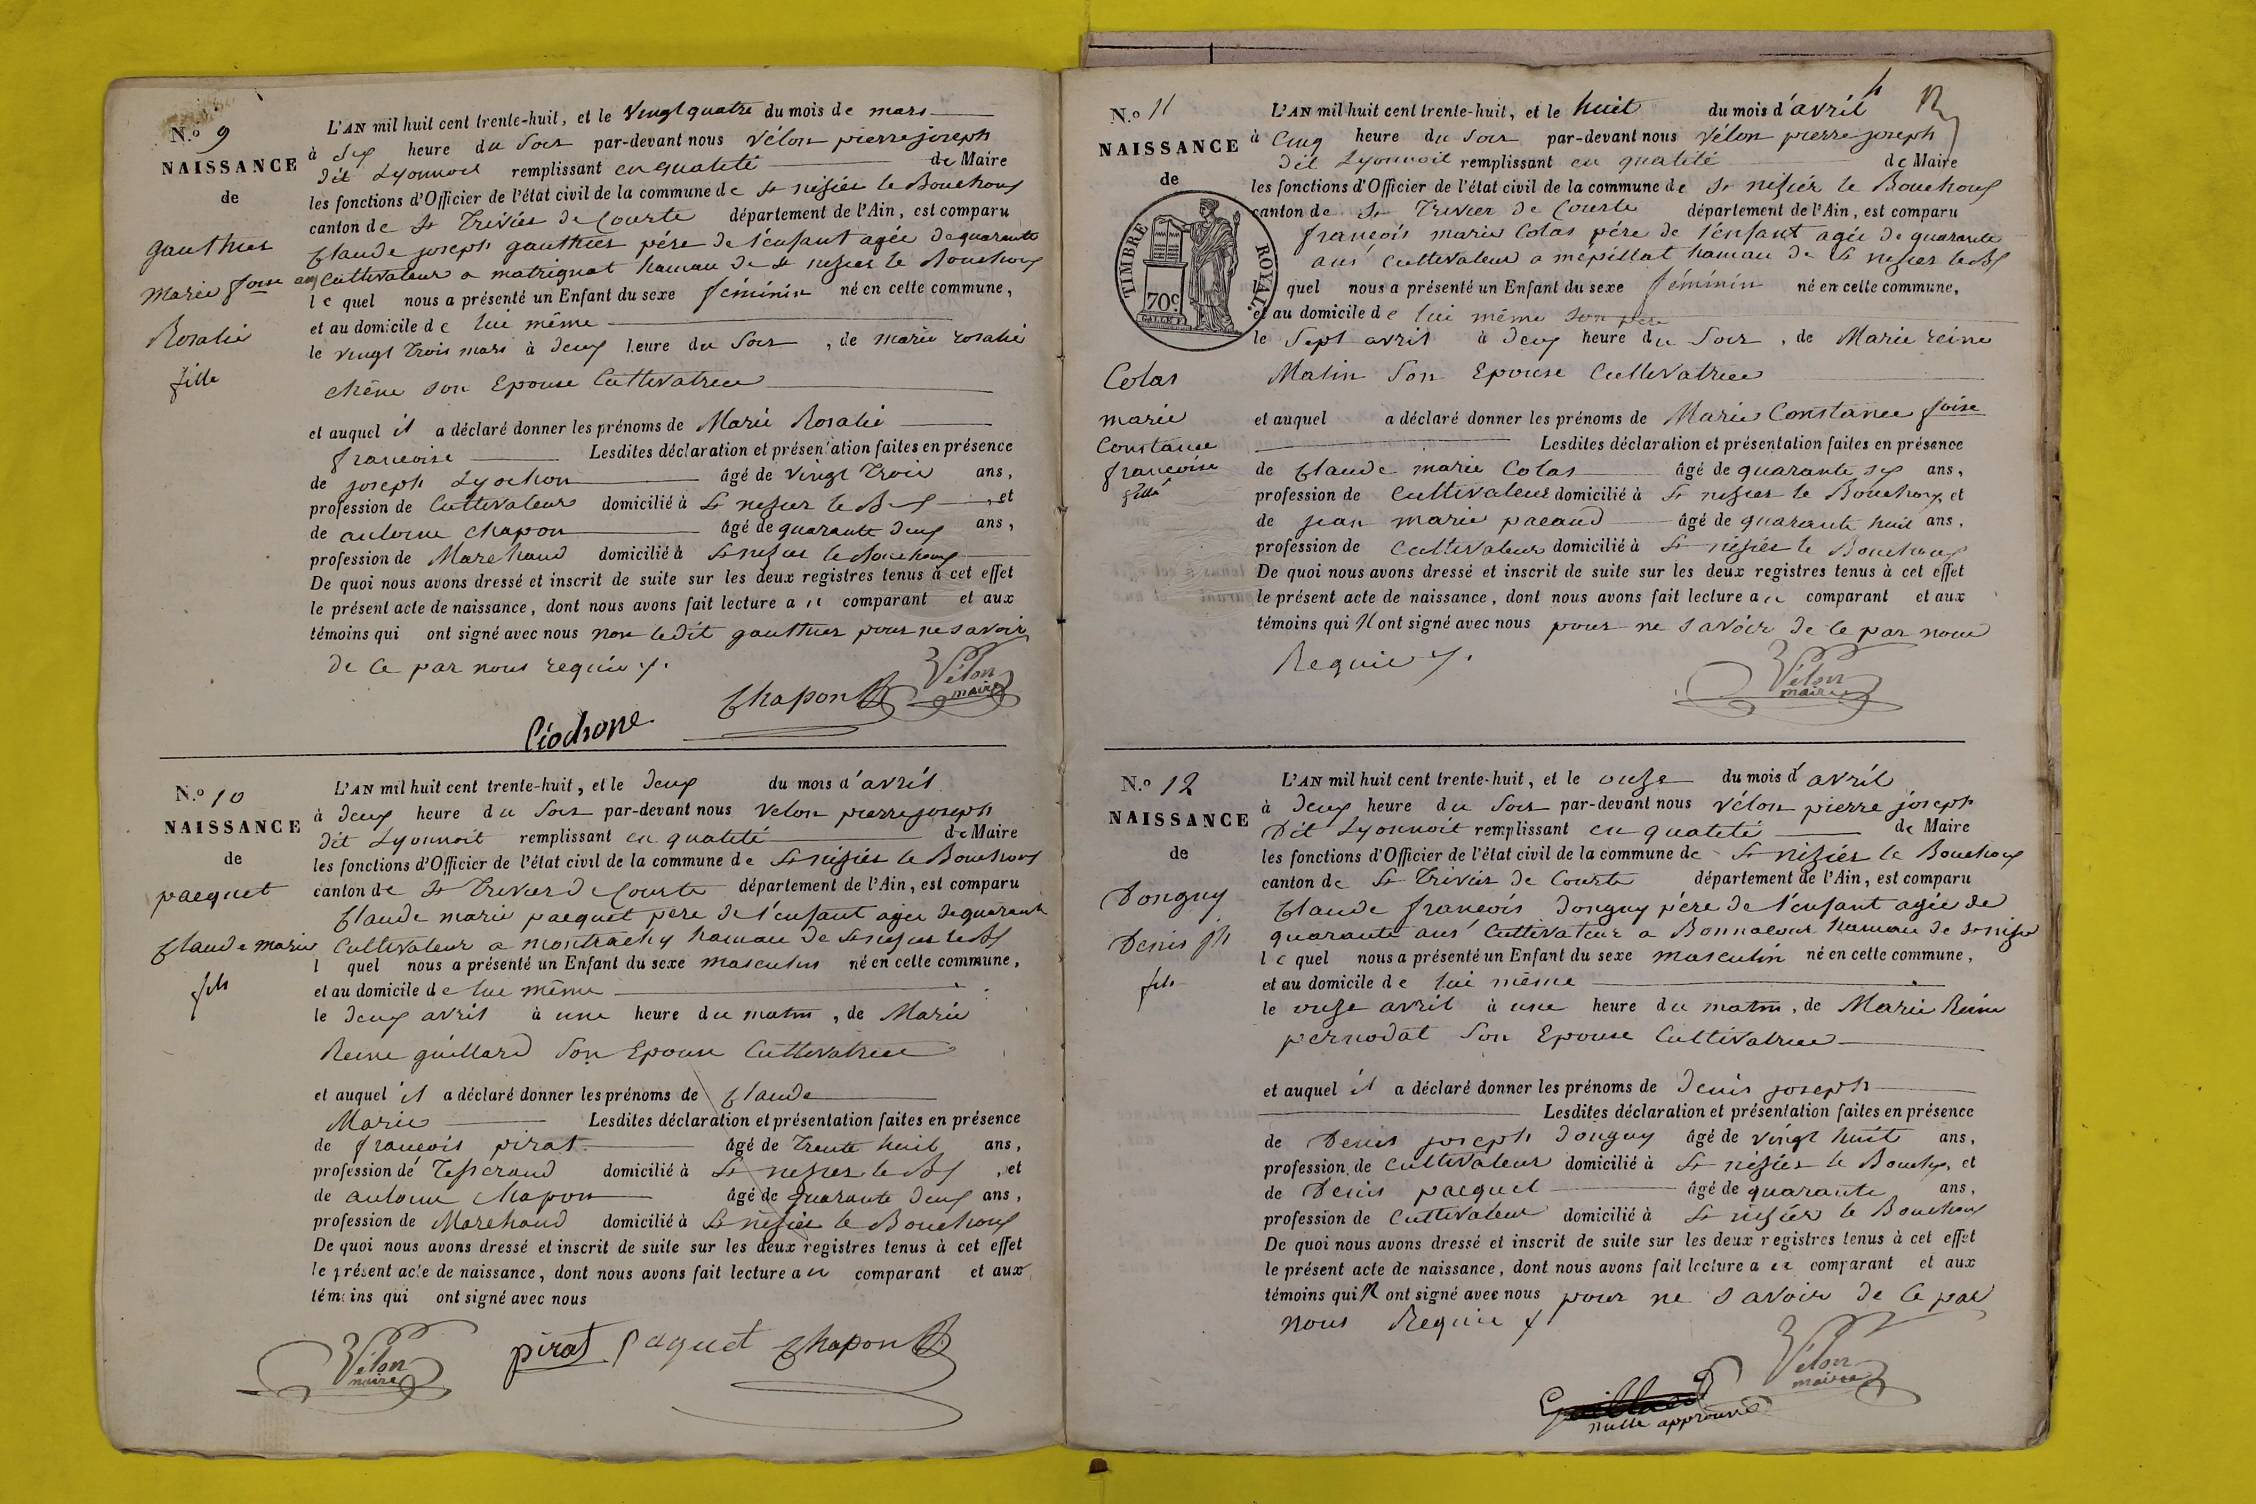 N.o 9
NAISSANCE
de
gauthier
Marie foise
Rosalie
fille
L'AN mil huit cent trente-huit, et le vingt quatre du mois de mars
à six heure du soir par-devant nous vélon pierre joseph
dit Lyonnois remplissant en qualité de Maire
les fonctions d'Officier de l'état civil de la commune de St nizier le Bouchoux
canton de St Trivier de Courte département de l'Ain, est comparu
Claude joseph gauthier père de l'enfant agée de quarante
ans Cultivateur a matrignat hameau de St nizier le Bouchoux
le quel nous a présenté un Enfant du sexe féminin né en cette commune,
et au domicile de lui même
le vingt trois mars à deux heure du soir, de marie rosalie
chêne son Epouse Cultivatrice
et auquel il a déclaré donner les prénoms de Marie Rosalie
francoise Lesdites déclaration et présentation faites en présence
de joseph Lyochon âgé de vingt trois ans,
profession de Cultivateur domicilié à St nizier le Bx, et
de antoine chapon âgé de quarante deux ans,
profession de Marchand domicilié à St nizier le Bouchoux
De quoi nous avons dressé et inscrit de suite sur les deux registres tenus à cet effet
le présent acte de naissance, dont nous avons fait lecture au comparant et aux
témoins qui ont signé avec nous non ledit gauthier pour ne savoir
de ce par nous requis
Chapon
Vélon
maire
Liochone
N.o 10
NAISSANCE
de
pacquet
Claude marie
fils
L'AN mil huit cent trente-huit, et le deux du mois d'avril
à deux heure du soir par-devant nous velon pierre joseph
dit Lyonnoit remplissant en qualité de Maire
les fonctions d'Officier de l'état civil de la commune de St nizier le Bouchoux
canton de St Trivier de Courte département de l'Ain, est comparu
Claude marie pacquet père de l'enfant agée de quarante
Cultivateur a montrachy hameau de St nizier le Bx
l quel nous a présenté un Enfant du sexe masculin né en cette commune,
et au domicile de lui même
le deux avril à une heure du matin, de Marie
Reine guillard son Epouse Cultivatrice
et auquel il a déclaré donner les prénoms de Claude
Marie Lesdites déclaration et présentation faites en présence
de françois pirat âgé de trente huit ans,
profession de Tisserand domicilié à St nizier le Bx, et
de antoine chapon âgé de quarante deux ans,
profession de Marchand domicilié à St nizier le Bouchoux
De quoi nous avons dressé et inscrit de suite sur les deux registres tenus à cet effet
le présent acte de naissance, dont nous avons fait lecture au comparant et aux
témoins qui ont signé avec nous
Vélon
maire
pirat paquet Chapon
4
N.o 11
NAISSANCE
de
TIMBRE ROYAL
70c
Colas
marie
Constance
françoise
fille
L'AN mil huit cent trente-huit, et le huit du mois d'avril
à Cinq heure du soir par-devant nous vélon pierre joseph
dit Lyonnoit remplissant en qualité de Maire
les fonctions d'Officier de l'état civil de la commune de St nizier le Bouchoux
canton de St Trivier de Courte département de l'Ain, est comparu
françois marie Colas père de l'enfant agée de quarante
ans Cultivateur a mépillat hameau de St nizier le Bx
quel nous a présenté un Enfant du sexe féminin né en cette commune,
et au domicile de lui même son père
le sept avril à deux heure du soir, de Marie reine
Matin son Epouse Cultivatrice
et auquel a déclaré donner les prénoms de Marie Constance foise
Lesdites déclaration et présentation faites en présence
de Claude marie Colas âgé de quarante six ans,
profession de Cultivateur domicilié à St nizier le Bouchoux, et
de jean marie pacaud âgé de quarante huit ans,
profession de Cultivateur domicilié à St nizier le Bouchoux
De quoi nous avons dressé et inscrit de suite sur les deux registres tenus à cet effet
le présent acte de naissance, dont nous avons fait lecture au comparant et aux
témoins qui n ont signé avec nous pour ne savoir de ce par nous
Requis
Vélon
maire
N.o 12
NAISSANCE
de
Donguy
Denis jh
fils
L'AN mil huit cent trente-huit, et le onze du mois d'avril
à deux heure du soir par-devant nous vélon pierre joseph
Dit Lyonnoit remplissant en qualité de Maire
les fonctions d'Officier de l'état civil de la commune de St nizier le Bouchoux
canton de St Trivier de Courte département de l'Ain, est comparu
Claude françois donguy père de l'enfant agée de
quarante ans Cultivateur a Bonnacour hameau de St nizier
le quel nous a présenté un Enfant du sexe masculin né en cette commune,
et au domicile de lui même
le onze avril à une heure du matin, de Marie Reine
pernodat son Epouse Cultivatrice
et auquel il a déclaré donner les prénoms de denis joseph
Lesdites déclaration et présentation faites en présence
de Denis joseph donguy âgé de vingt huit ans,
profession de Cultivateur domicilié à St nizier le Bouchx, et
de Denis pacquet âgé de quarante ans,
profession de Cultivateur domicilié à St nizier le Bouchoux
De quoi nous avons dressé et inscrit de suite sur les deux registres tenus à cet effet
le présent acte de naissance, dont nous avons fait lecture au comparant et aux
témoins qui n ont signé avec nous pour ne savoir de ce par
nous Requis
Vélon
maire
Guillard
nulle approuvé